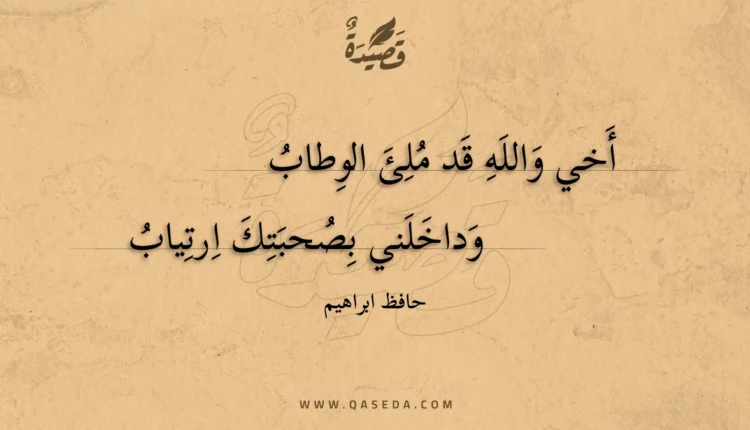 قَصِيدَةٌ
أَخي وَاللَهِ قَد مُلِئَ الوِطابُ
وَداخَلَني بِصُحبَتِكَ اِرتِيابُ
حافظ ابراهيم
WWW.QASEDA.COM